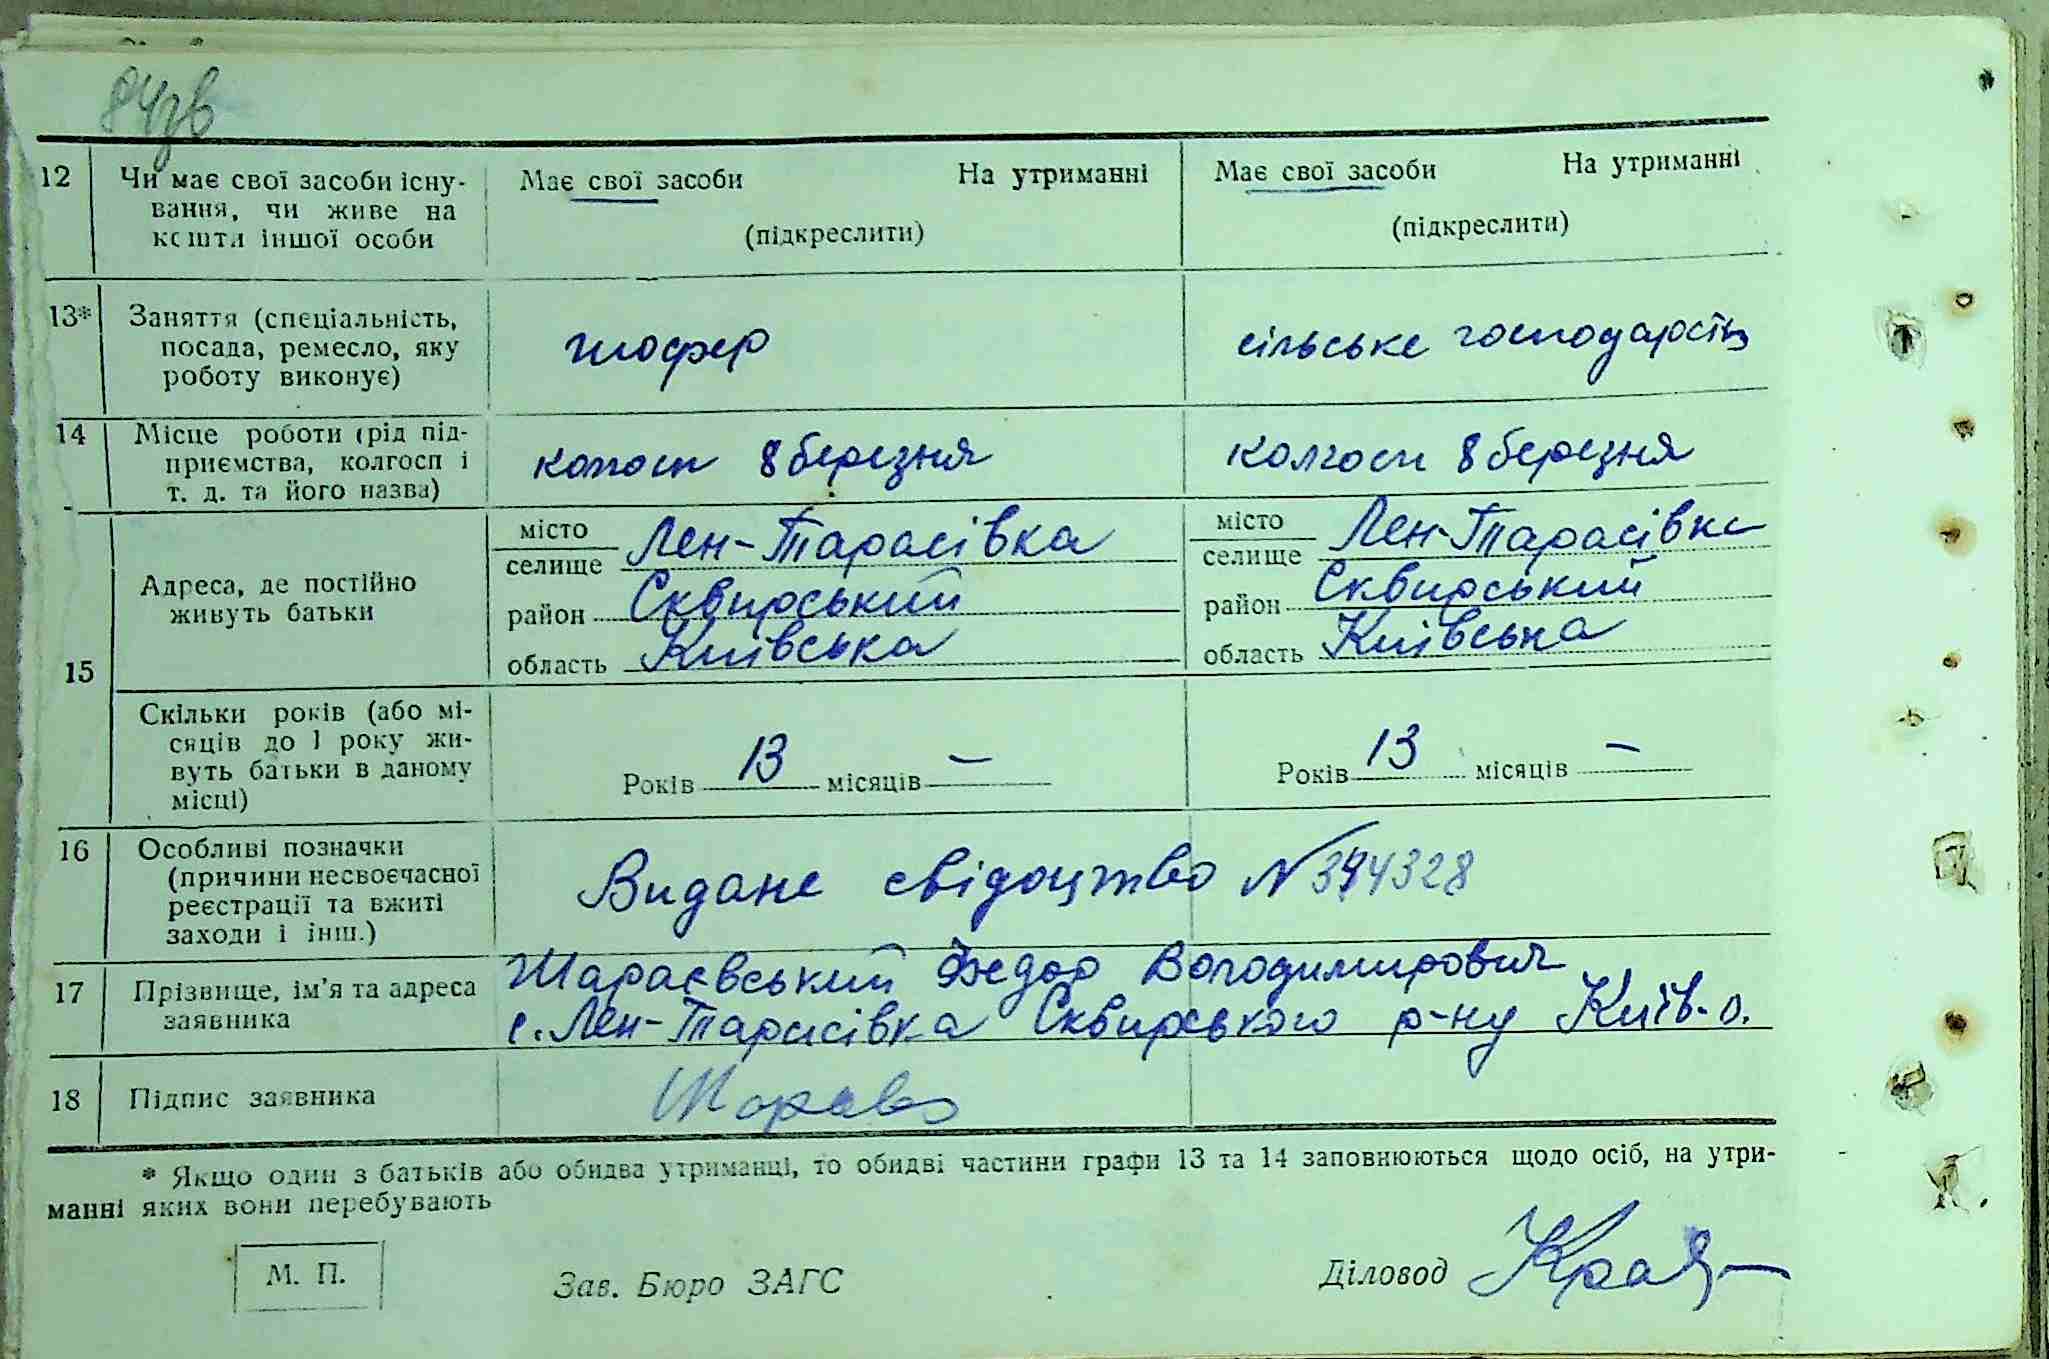 84зв
12 Чи має свої засоби існу- Має свої засоби На утриманні Має свої засоби На утриманні
вання, чи живе на (підкреслити) (підкреслити)
кошти іншої особи
13* Заняття (спеціальність,
посада, ремесло, яку шофер сільське господарство
роботу виконує)
14 Місце роботи (рід під-
приємства, колгосп і колгосп 8 березня колгосп 8 березня
т. д. та його назва)
15 Адреса, де постійно живуть батьки
місто селище Лен-Тарасівка місто селище Лен-Тарасівка
район Сквирський район Сквирський
область Київська область Київська
Скільки років (або мі-
сяців до 1 року жи-
вуть батьки в даному Років 13 місяців — Років 13 місяців —
місці)
16 Особливі позначки
(причини несвоєчасної Видане свідоцтво N 394328
реєстрації та вжиті
заходи і інш.)
17 Прізвище, ім'я та адреса Шараєвський Федор Володимирович
заявника с. Лен-Тарасівка Сквирського р-ну Київ-о.
18 Підпис заявника
* Якщо один з батьків або обидва утриманці, то обидві частини графи 13 та 14 заповнюються щодо осіб, на утри-
манні яких вони перебувають
М. П. Зав. Бюро ЗАГС Діловод